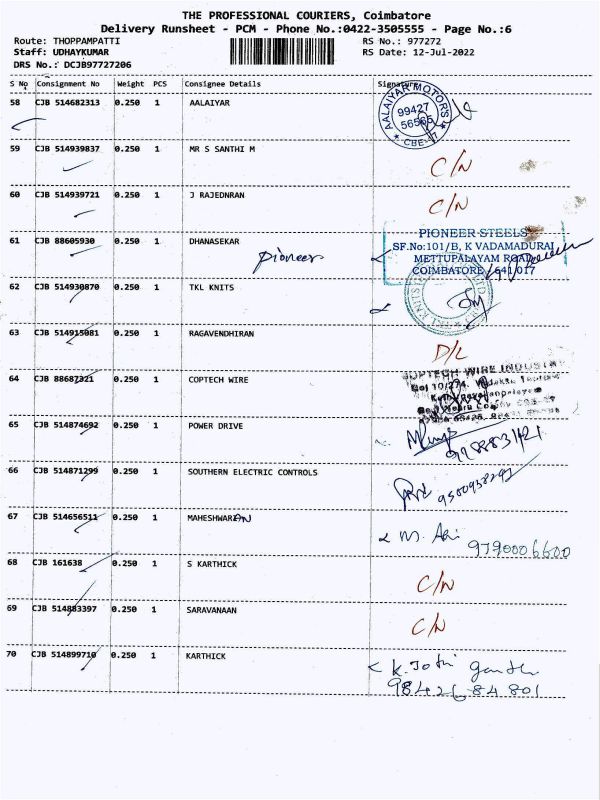 THE PROFESSIONAL COURIERS, Coimbatore
Delivery Runsheet - PCM - Phone No.:0422-3505555 - Page No.:6
Route: THOPPAMPATTI RS No.: 977272
Staff: UDHAYKUMAR RS Date: 12-Jul-2022
DRS No.: DCJB97727206
S No Consignment No Weight PCS Consignee Details Signature
58 CJB 514682313 0.250 1 AALAIYAR
AALAIYAR MOTOR'S
99427
56565
CBE-17
59 CJB 514939837 0.250 1 MR S SANTHI M C/N
60 CJB 514939721 0.250 1 J RAJEDNRAN C/N
61 CJB 88605930 0.250 1 DHANASEKAR pioneer
PIONEER STEELS
SF.No:101/B, K VADAMADURAI
METTUPALAYAM ROAD
COIMBATORE - 641 017
62 CJB 514930870 0.250 1 TKL KNITS
63 CJB 514915081 0.250 1 RAGAVENDHIRAN D/L
64 CJB 88687321 0.250 1 COPTECH WIRE
COPTECH WIRE
65 CJB 514874692 0.250 1 POWER DRIVE
66 CJB 514871299 0.250 1 SOUTHERN ELECTRIC CONTROLS
67 CJB 514656511 0.250 1 MAHESHWARAN
9790006600
68 CJB 161638 0.250 1 S KARTHICK C/N
69 CJB 514883397 0.250 1 SARAVANAAN C/N
70 CJB 514899710 0.250 1 KARTHICK
K. Jothi
98426 84 801